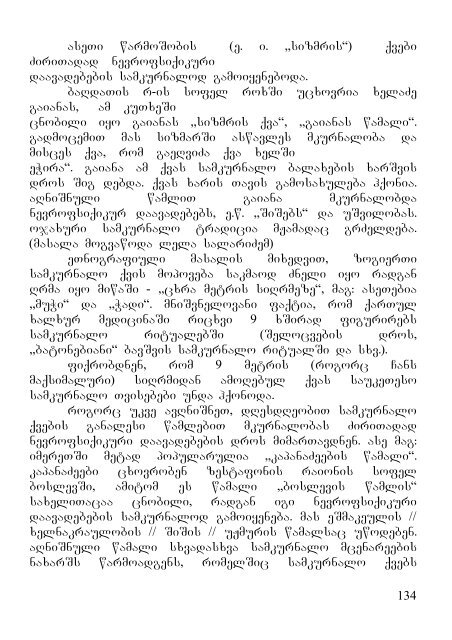 ასეთი წარმოშობის (ე. ი. „სიზმრის“) ქვები
ძირითადად ნევროფსიქიკური
დაავადებების სამკურნალოდ გამოიყენებოდა.
ბაღდათის რ-ის სოფელ როხში უცხოვრია ხელაძე
გაიანას, ამ კუთხეში
ცნობილი იყო გაიანას „სიზმრის ქვა“, „გაიანას წამალი“.
გადმოცემით მას სიზმარში ასწავლეს მკურნალობა და
მისცეს ქვა, რომ გაეღვიძა ქვა ხელში
ეჭირა“. გაიანა ამ ქვას სამკურნალო ბალახების ხარშვის
დროს შიგ დებდა. ქვას ხარის თავის გამოსახულება ჰქონია.
აღნიშნული წამლით გაიანა მკურნალობდა
ნევროფსიქიკურ დაავადებებს, ე.წ. „შიშებს“ და უშვილობას.
ოჯახური სამკურნალო ტრადიცია მჟამადაც გრძელდება.
(მასალა მოგვაწოდა ლელა სალარიძემ)
ეთნოგრაფიული მასალის მიხედვით, ზოგიერთი
სამკურნალო ქვის მოპოვება საკმაოდ ძნელი იყო რადგან
ღრმა იყო მიწაში - „ცხრა მეტრის სიღრმეზე“, მაგ: ასეთებია
„მუჭი“ და „ჭადი“. მნიშვნელოვანი ფაქტია, რომ ქართულ
ხალხურ მედიცინაში რიცხვი 9 ხშირად ფიგურირებს
სამკურნალო რიტუალებში (შელოცვების დროს,
„ბატონებიანი“ ბავშვის სამკურნალო რიტუალში და სხვ.).
ფიქრობდნენ, რომ 9 მეტრის (როგორც ჩანს
მაქსიმალური) სიღრმიდან ამოღებულ ქვას საუკეთესო
სამკურნალო თვისებები უნდა ჰქონოდა.
როგორც უკვე ავღნიშნეთ, დღესდღეობით სამკურნალო
ქვების განალესი წამლებით მკურნალობას ძირითადად
ნევროფსიქიკური დაავადებების დროს მიმართავდნენ. ასე მაგ:
იმერეთში მეტად პოპულარულია „კაპანაძეების წამალი“.
კაპანაძეები ცხოვრობენ ზესტაფონის რაიონის სოფელ
ბოსლევში, ამიტომ ეს წამალი „ბოსლევის წამლის“
სახელითაცაა ცნობილი, რადგან იგი ნევროფსიქიკური
დაავადებების სამკურნალოდ გამოიყენება. მას ეშმაკეულის //
ხელნაკრაულობის // შიშის // უჟმურის წამალსაც უწოდებენ.
აღნიშნული წამალი სხვადასხვა სამკურნალო მცენარეების
ნახარშს წარმოადგენს, რომელშიც სამკურნალო ქვებს
134